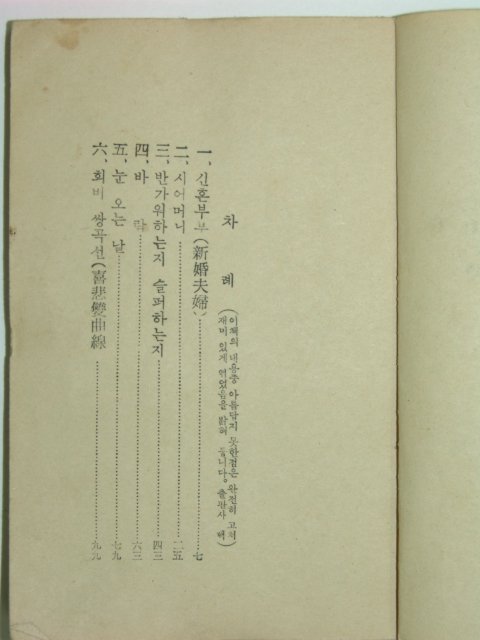 차 례
(이책의 내용중 아름답지 못한점은 완전히 고쳐
재미 있게 엮었음을 밝혀 둡니다. 출판사 백)
一, 신혼부부(新婚夫婦)……七
二, 시어머니……二五
三, 반가워하는지 슬퍼하는지……四三
四, 바 람……六三
五, 눈 오는 날……七九
六, 희비 쌍곡선(喜悲雙曲線)……九九